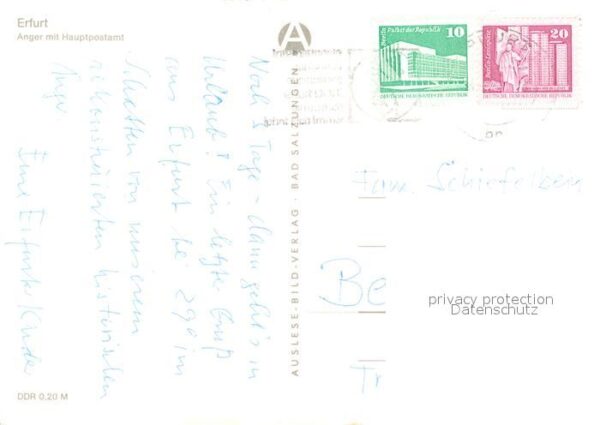 Erfurt
Anger mit Hauptpostamt
Noch 2 Tage - dann geht's in
Urlaub! Ein letzter Gruß
aus Erfurt bei 29° im
Schatten von unserem
rekonstruierten historischen
Anger.
Eure Erfurter Kinder
DDR 0,20 M
AUSLESE-BILD-VERLAG · BAD SALZUNGEN
A
Berlin, Palast der Republik
10
DEUTSCHE DEMOKRATISCHE REPUBLIK
Berlin, Leninplatz
20
DEUTSCHE DEMOKRATISCHE REPUBLIK
Fam. Schiefelbein
Be
Fr
privacy protection
Datenschutz